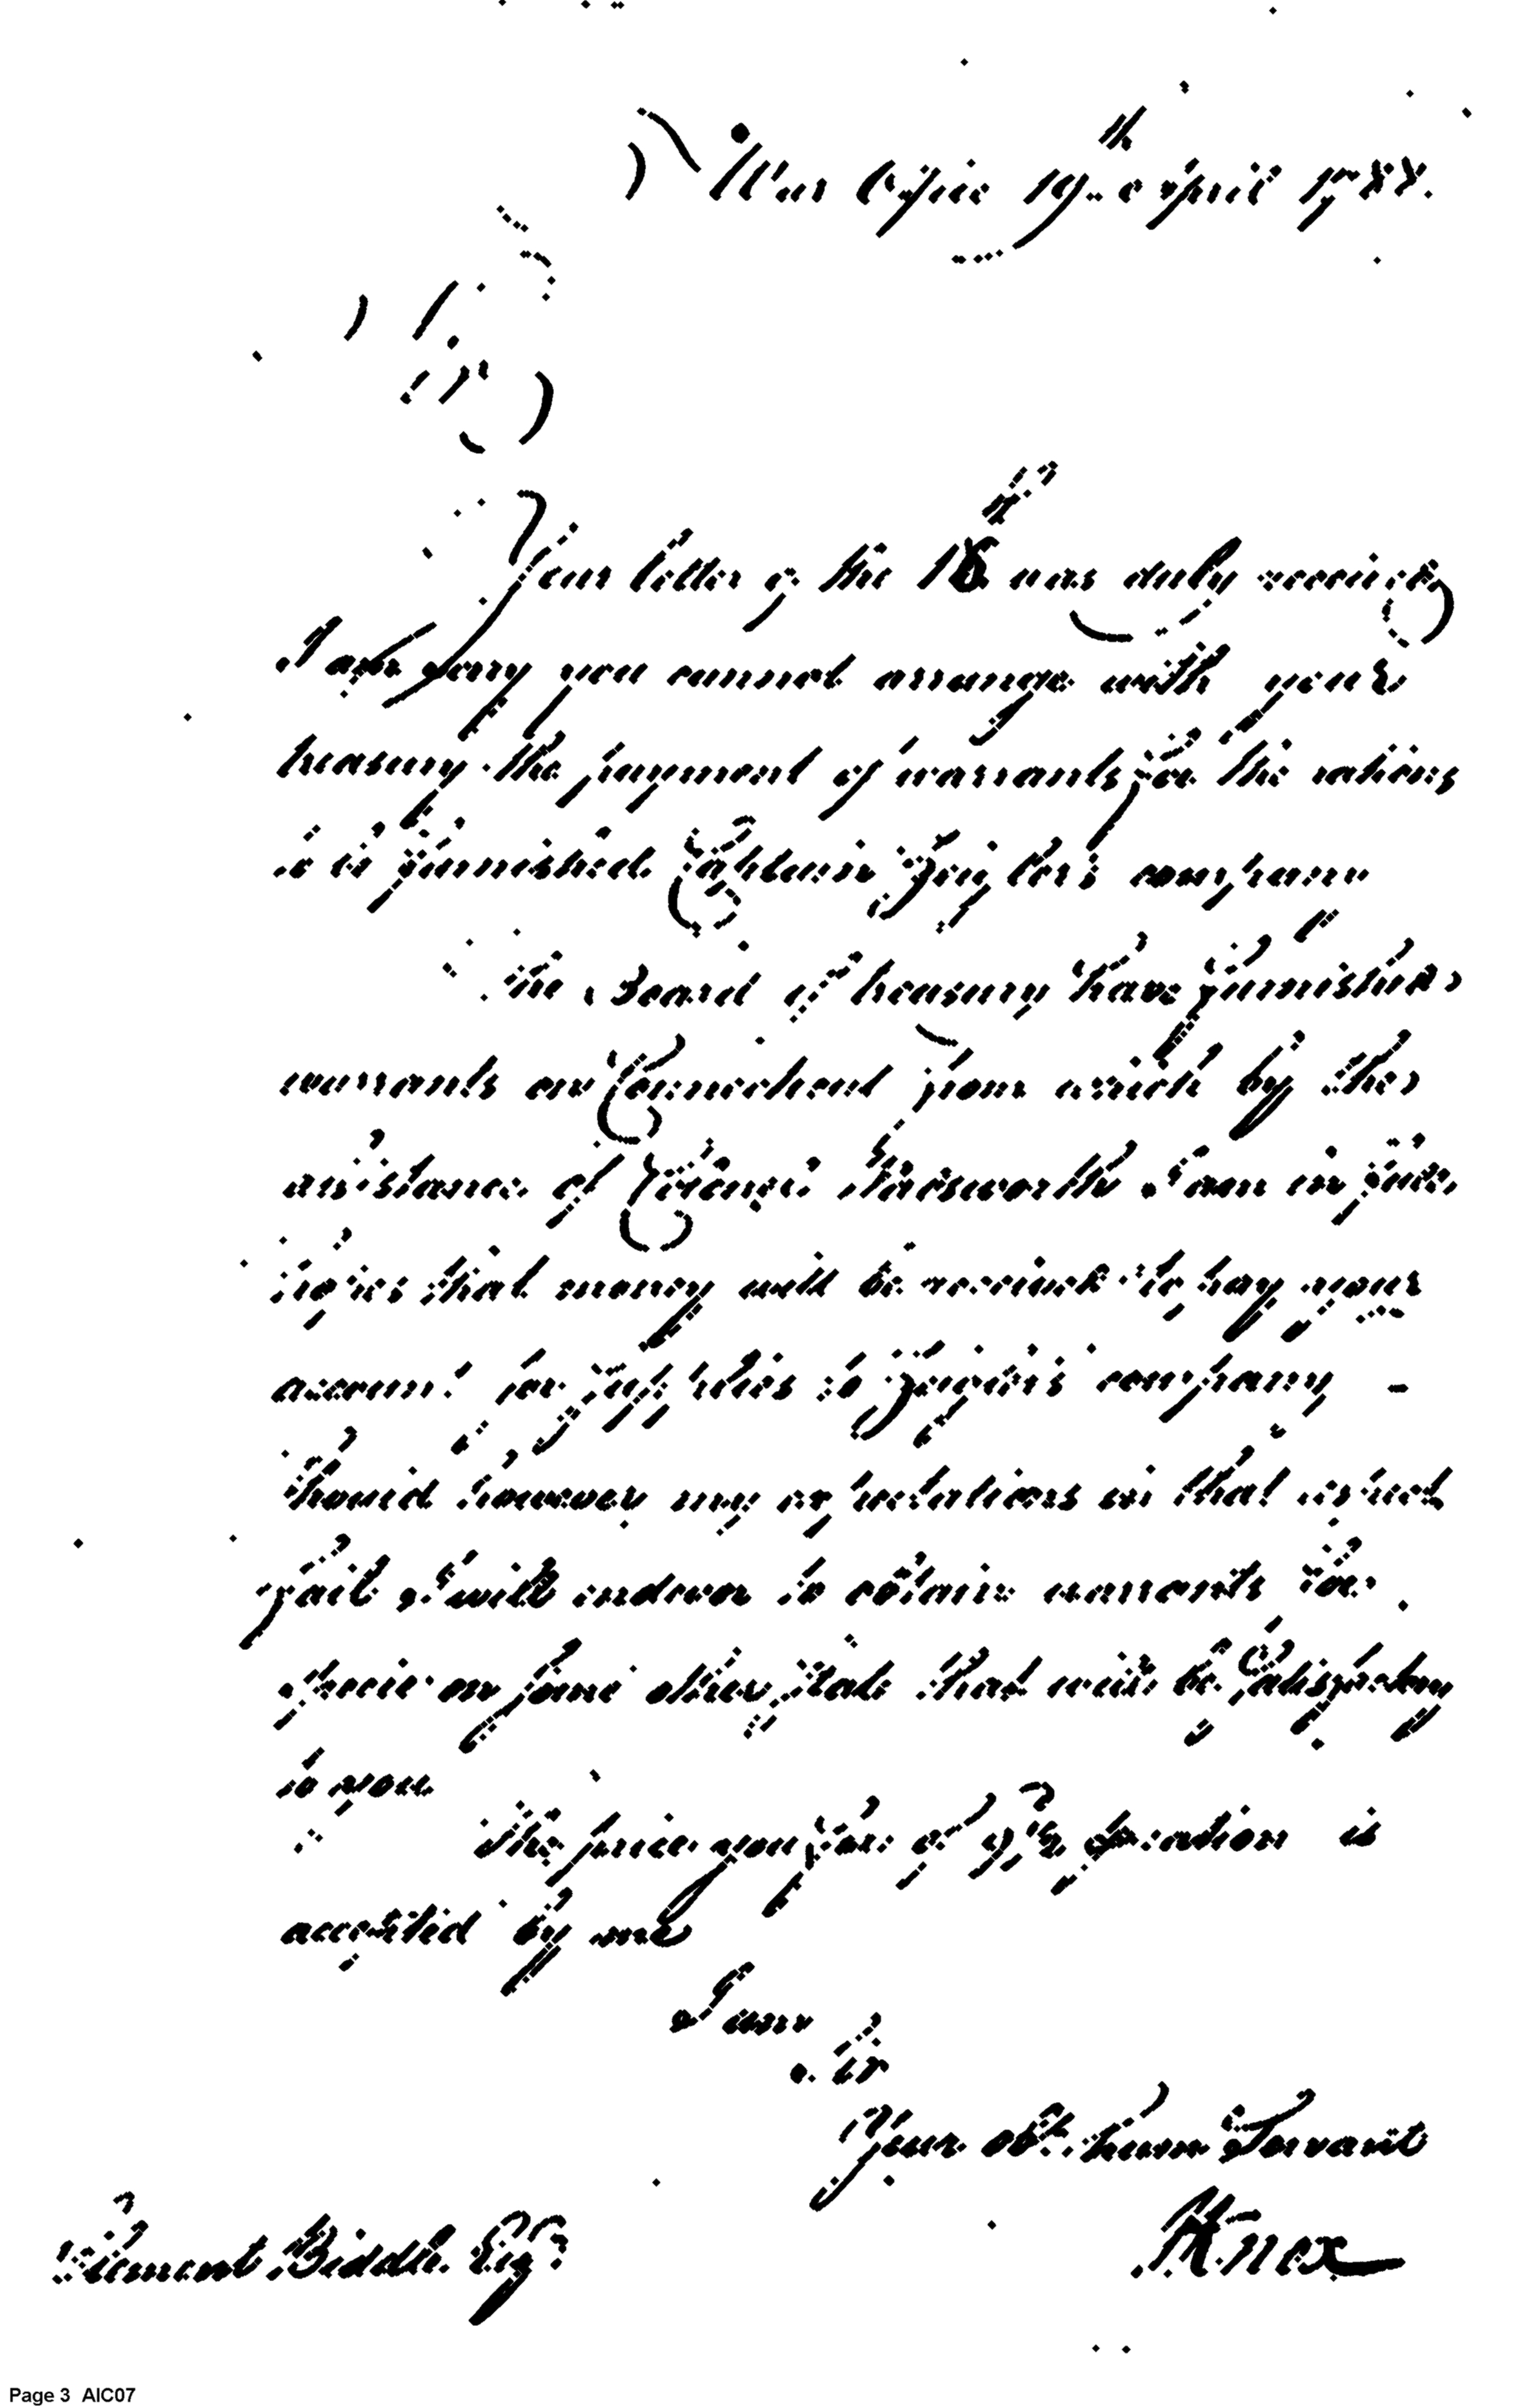 War Office 19th April 1788.
Sir
Your letter of the 16th was duly received
I am sorry you cannot arrange with your
treasury the payment of warrants for the rations
to be furnished Captain Zeiglers company
The Board of treasury have furnished
warrants on Connecticut from which by the
assistance of Colonel Wadsworth I am in full
hopes that money will be received to pay your
account for supplies to Zeiglers company -
Should however my expectations in that respect
fail I will endevor to obtain warrants for
specie on some other state that will be satisfactory
to you
The price you fix of pr ration is
accepted by me
I am
Sir
Your obt. hum Servant
HKnox
Clement Biddle Esqr
Page 3 AIC07